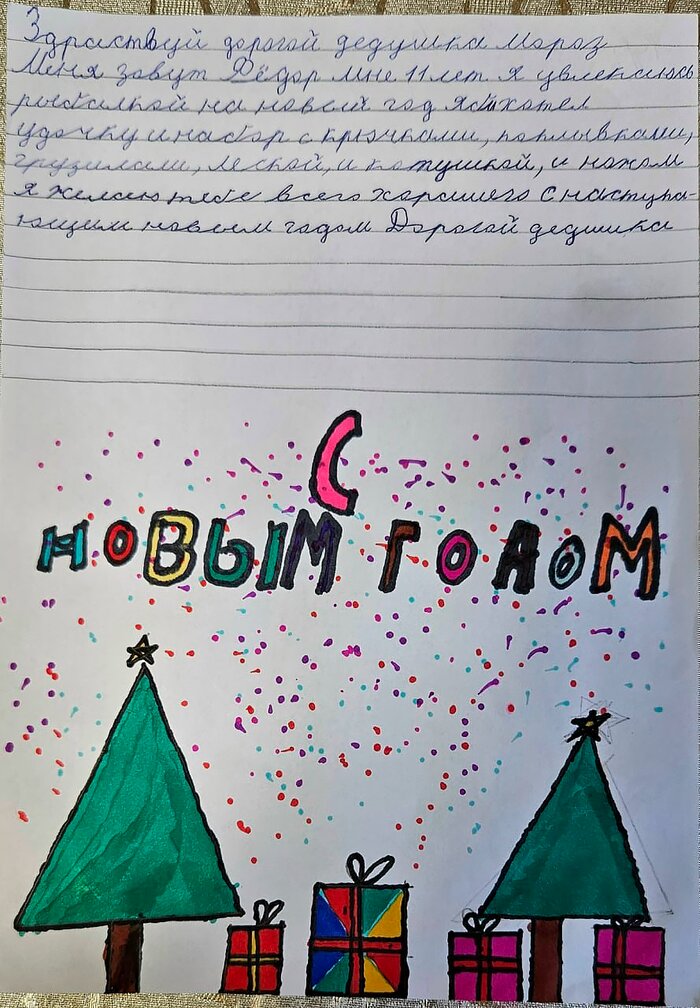 Здраствуй дорогой дедушка Мороз
Меня зовут Фёдор мне 11 лет я увлекаюсь
рыбалкой на новый год я бы хотел
удочку и набор с крючками, поплывками,
грузилами, леской, и катушкой, и ножом
я желаю тебе всего харошего с наступа-
ющим новым годом Дорогой дедушка
С
НОВЫМ ГОДОМ